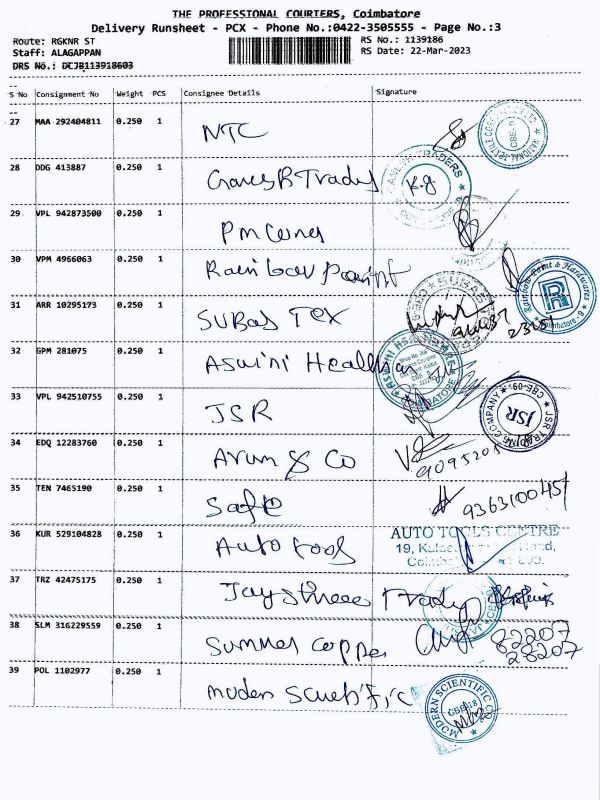 THE PROFESSIONAL COURIERS, Coimbatore
Delivery Runsheet - PCX - Phone No.:0422-3505555 - Page No.:3
Route: RGKNR ST
RS No.: 1139186
Staff: ALAGAPPAN
RS Date: 22-Mar-2023
DRS No.: DCJB113918603
S No Consignment No Weight PCS Consignee Details Signature
27 MAA 292404811 0.250 1 NTC
28 DDG 413887 0.250 1 Ganes B Trades K.g
29 VPL 942873500 0.250 1
30 VPM 4966063 0.250 1 Rainbow paint
31 ARR 10295173 0.250 1 SUBAS TEX
32 GPM 281075 0.250 1 Aswini
33 VPL 942510755 0.250 1 JSR
JSR TRADING COMPANY ★ CBE-09. ★
JSR
34 EDQ 12283760 0.250 1 Arun & Co
35 TEN 7465190 0.250 1 Safe
36 KUR 529104828 0.250 1 Auto tools
AUTO TOOLS CENTRE
37 TRZ 42475175 0.250 1 Jayshree
38 SLM 316229559 0.250 1 Summer copper 82207
28207
39 POL 1102977 0.250 1 Moden
MODERN SCIENTIFIC CO